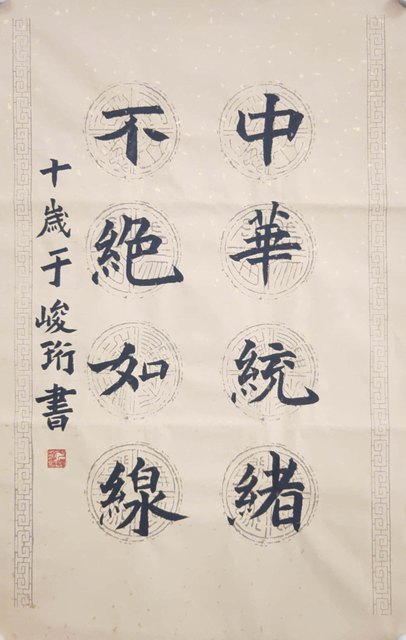 中華統緒
不絕如線
十歲于峻珩書